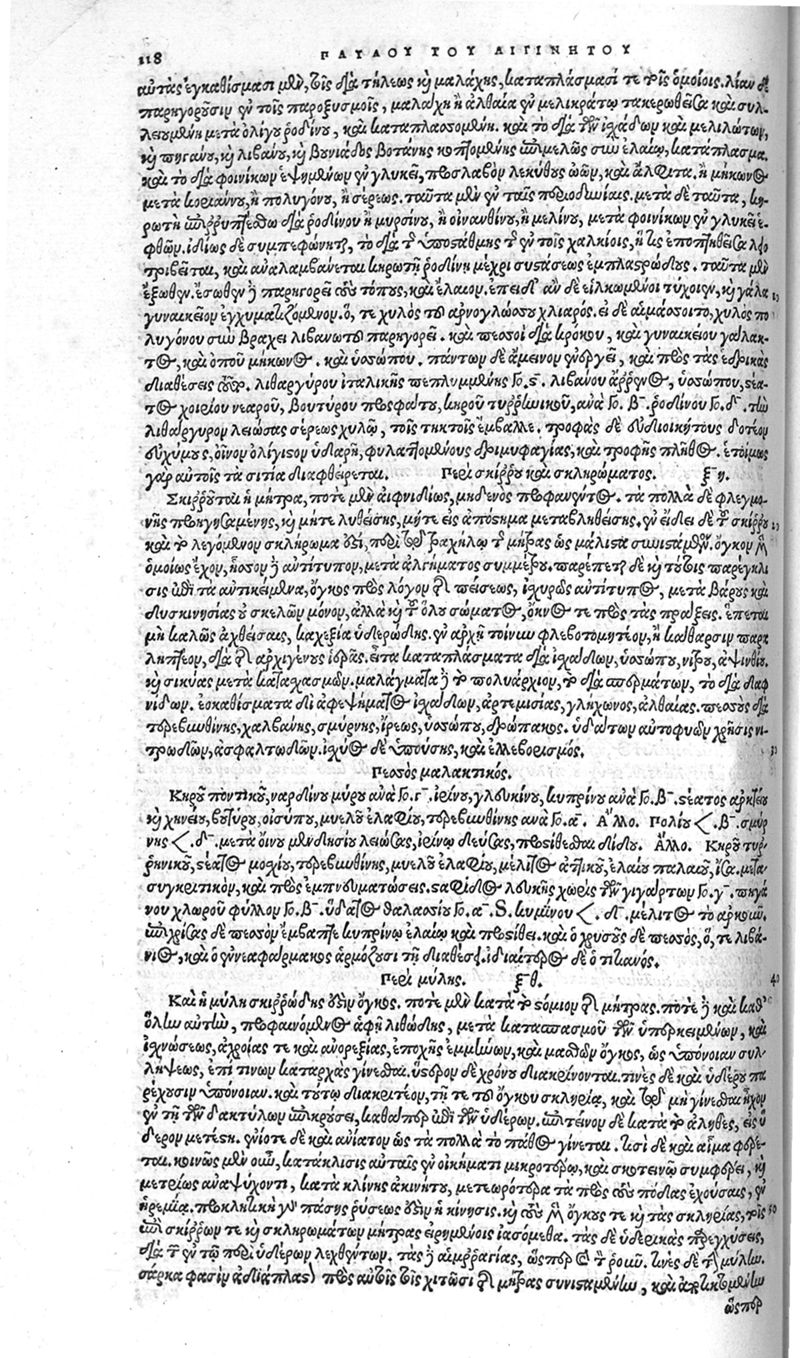 118 ΠΑΥΛΟΥ ΤΟΥ ΑΙΓΙΝΗΤΟΥ
αὐτὰς ἐγκαθίσμασι μὲν, τοῖς διὰ τήλεως καὶ μαλάχης, καταπλάσμασί τε τοῖς ὁμοίοις. λίαν δὲ
παρηγοροῦσιν ἐν τοῖς παροξυσμοῖς, μαλάχη ἢ ἀλθαία ἐν μελικράτῳ τακερωθεῖσα καὶ συλ-
λειουμένη μετὰ ὀλίγου ῥοδίνου, καὶ καταπλασσομένη. καὶ τὸ διὰ τῶν ἰσχάδων καὶ μελιλώτων,
καὶ πηγάνου, καὶ λιβάνου, καὶ βουνιάδος βοτάνης κοπτομένης ἐπιμελῶς σὺν ἐλαίῳ, κατάπλασμα.
καὶ τὸ διὰ φοινίκων ἑψημένων ἐν γλυκεῖ, προσλαβὸν λεκύθους ὠῶν, καὶ ἄλφιτα. ἢ μήκωνος
μετὰ κοριάννου, ἢ πολυγόνου, ἢ σέρεως. ταῦτα μὲν ἐν ταῖς περιοδυνίαις. μετὰ δὲ ταῦτα, κη-
ρωτὴ ἐπιρριπτέσθω διὰ ῥοδίνου ἢ μυρσίνου, ἢ οἰνανθίνου, ἢ μελίνου, μετὰ φοινίκων ἐν γλυκεῖ ἑ-
φθῶν. ἰδίως δὲ συμπεφώνηται, τὸ διὰ τῆς ὑποστάθμης τῆς ἐν τοῖς χαλκίοις, ἥτις ἐποπτηθεῖσα λειο
τριβεῖται, καὶ ἀναλαμβάνεται κηρωτῇ ῥοδίνῃ μέχρι συστάσεως ἐμπλαστρώδους. ταῦτα μὲν
ἔξωθεν. ἔσωθεν δὲ παρηγορεῖ τοὺς τόπους, καὶ ἔλαιον. ἐπειδ' ἂν δὲ εἱλκωμένοι τύχοιεν, καὶ γάλα
γυναικεῖον ἐγχυματιζόμενον. ὅ, τε χυλὸς τοῦ ἀρνογλώσσου χλιαρός. εἰ δὲ αἱμάσσοιτο, χυλὸς πο
λυγόνου σὺν βραχεῖ λιβανωτοῦ παρηγορεῖ. καὶ πεσσοὶ διὰ κρόκου, καὶ γυναικείου γάλακ-
τος, καὶ ὀποῦ μήκωνος. καὶ ὑσσώπου. πάντων δὲ ἄμεινον ἐνεργεῖ, καὶ πρὸς τὰς ἑδρικὰς
διαθέσεις τοῦτο. λιθαργύρου ἰταλικῆς πεπλυμένης Γο. ϛ. λιβάνου ἄρρενος, ὑσσώπου, στέα-
τος χοιρείου νεαροῦ, βουτύρου προσφάτου, κηροῦ τυρρηνικοῦ, ἀνὰ Γο. β. ῥοδίνου Γο. δ. τὴν
λιθάργυρον λειώσας σέρεως χυλῷ, τοῖς τηκτοῖς ἔμβαλλε. τροφὰς δὲ εὐδιοικήτους δοτέον
εὐχύμους, οἶνον ὀλίγιστον ὑδαρῆ, φυλαττομένους δριμυφαγίας, καὶ τροφῆς πλῆθος. ἑτοίμως
γὰρ αὐτοῖς τὰ σιτία διαφθείρεται. Περὶ σκίρρου καὶ σκληρώματος. ξη.
Σκιρροῦται ἡ μήτρα, ποτὲ μὲν αἰφνιδίως, μηδενὸς προφανέντος. τὰ πολλὰ δὲ φλεγμο-
νῆς προηγησαμένης, καὶ μήτε λυθείσης, μήτε εἰς ἀπόστημα μεταβληθείσης. ἐν εἴδει δὲ τοῦ σκίρρου
καὶ τὸ λεγόμενον σκλήρωμα ἐστὶ, περὶ τῷ τραχήλῳ τῆς μήτρας ὡς μάλιστα συνιστάμενον. ὄγκον μὲν
ὁμοίως ἔχον, ἧσσον δὲ ἀντίτυπον, μετὰ ἀλγήματος συμμέτρου. παρέπεται δὲ καὶ τούτοις παρέγκλι
σις ἐπὶ τὰ ἀντικείμενα, ὄγκος πρὸς λόγον τῆς πτίσεως, ἰσχυρῶς ἀντίτυπος, μετὰ βάρους καὶ
δυσκινησίας οὐ σκελῶν μόνον, ἀλλὰ καὶ τοῦ ὅλου σώματος, ὄκνος τε πρὸς τὰς πράξεις. ἕπεται
μὴ καλῶς ἀχθείσαις, καχεξία ὑδερώδης. ἐν ἀρχῇ τοίνυν φλεβοτομητέον, ἢ κάθαρσιν παρα
ληπτέον, διὰ τῆς ἀρχιγένους ἱερᾶς. εἶτα καταπλάσματα διὰ ἰσχάδων, ὑσσώπου, νίτρου, ἀψινθίου.
καὶ σικύας μετὰ κατασχασμῶν. μαλάγματα δὲ τὸ πολυάρχιον, τὸ διὰ σπερμάτων, τὸ διὰ δαφ
νίδων. ἐγκαθίσματα δὲ ἀφεψήματος ἰσχάδων, ἀρτεμισίας, γλήχωνος, ἀλθαίας. πεσσοὺς διὰ
τερεβινθίνης, χαλβάνης, σμύρνης, ἴρεως, ὑσσώπου, δρώπακος. ὑδάτων αὐτοφυῶν χρῆσις νι-
τρωδῶν, ἀσφαλτωδῶν. ἰσχύος δὲ ὑπούσης, καὶ ἑλλεβορισμός.
Πεσσὸς μαλακτικός.
Κηροῦ ποντικοῦ, ναρδίνου μύρου ἀνὰ Γο. γ. ἰρίνου, γλευκίνου, κυπρίνου ἀνὰ Γο. β. στέατος ἀρκτείου
καὶ χηνείου, βουτύρου, οἰσύπου, μυελοῦ ἐλαφείου, τερεβινθίνης ἀνὰ Γο. α. Ἄλλο. Πολίου <. β. σμύρ
νης <. δ. μετὰ οἴνου μενδησίου λειώσας, ἰρίνῳ δεύσας, προστίθεσθαι δίδου. Ἄλλο. Κηροῦ τυρ-
ρηνικοῦ, στέατος μοσχίου, τερεβινθίνης, μυελοῦ ἐλαφείου, μέλιτος ἀττικοῦ, ἐλαίου παλαιοῦ, ἴσα. μετα-
συγκριτικὸν, καὶ πρὸς ἐμπνευματώσεις. σταφίδος λευκῆς χωρὶς τῶν γιγάρτων Γο. γ. πηγά
νου χλωροῦ φύλλον Γο. β. ὕδατος θαλασσίου Γο. α. S. κυμίνου <. δ. μέλιτος τὸ ἀρκοῦν.
ἐπιχρίσας δὲ πεσσὸν ἔμβαπτε κυπρίνῳ ἐλαίῳ καὶ προστίθει. καὶ ὁ χρυσοῦς δὲ πεσσὸς, ὅ, τε λιβά-
νιος, καὶ ὁ ἐνεαφάρμακος ἁρμόζουσι τῇ διαθέσει. ἰδιαίτερος δὲ ὁ τιτιανός.
Περὶ μύλης. ξθ.
Καὶ ἡ μύλη σκιρρώδης ἐστὶν ὄγκος. ποτὲ μὲν κατὰ τὸ στόμιον τῆς μήτρας. ποτὲ δὲ καὶ καθ'
ὅλην αὐτὴν, προφαινόμενος ἁφῇ λιθώδης, μετὰ κατασπασμοῦ τῶν ὑπερκειμένων, καὶ
ἰσχνώσεως, ἀχροίας τε καὶ ἀνορεξίας, ἐποχῆς ἐμμήνων, καὶ μασθῶν ὄγκος, ὡς ὑπόνοιαν συλ-
λήψεως, ἐπί τινων καταρχὰς γίνεσθαι. ὕστερον δὲ χρόνου διακρίνονται. τινὲς δὲ καὶ ὑδέρου πα
ρέχουσιν ὑπόνοιαν. καὶ τούτῳ διακριτέον, τῇ τε τοῦ ὄγκου σκληρίᾳ, καὶ τῷ μὴ γίνεσθαι ἦχον
ἐν τῇ τῶν δακτύλων ἐπικρούσει, καθάπερ ἐπὶ τῶν ὑδέρων. ἐπιτείνον δὲ κατὰ τὸ ἀληθὲς, εἰς ὕ
δερον μετέστη. ἐνίοτε δὲ καὶ ἀνίατον ὡς τὰ πολλὰ τὸ πάθος γίνεται. τισὶ δὲ καὶ αἷμα φέρε-
ται. κοινῶς μὲν οὖν, κατάκλισις αὐταῖς ἐν οἰκήματι μικροτέρῳ, καὶ σκοτεινῷ συμφέρει, καὶ
μετρίως ἀναψύχοντι, κατὰ κλίνης ἀκινήτου, μετεωρότερα τὰ πρὸς τοὺς πόδας ἐχούσαις, ἐν
ἠρεμίᾳ. προκλητικὴ γὰρ πάσης ῥύσεως ἐστὶν ἡ κίνησις. καὶ τοὺς μὲν ὄγκους τε καὶ τὰς σκληρίας, τοῖς
ἐπὶ σκίρρων τε καὶ σκληρωμάτων μήτρας εἰρημένοις ἰασόμεθα. τὰς δὲ ὑδερικὰς παρεγχύσεις,
διὰ τῶν ἐν τῷ περὶ ὑδέρων λεχθέντων. τὰς δὲ αἱμορραγίας, ὥσπερ ἐπὶ τοῦ ῥοῦ. τινὲς δὲ τὴν μύλην.
σάρκα φασὶν ἀδιάπλαστον πρὸς αὐτοῖς τοῖς χιτῶσι τῆς μήτρας συνισταμένην, καὶ ἀποτικτομένην
ὥσπερ